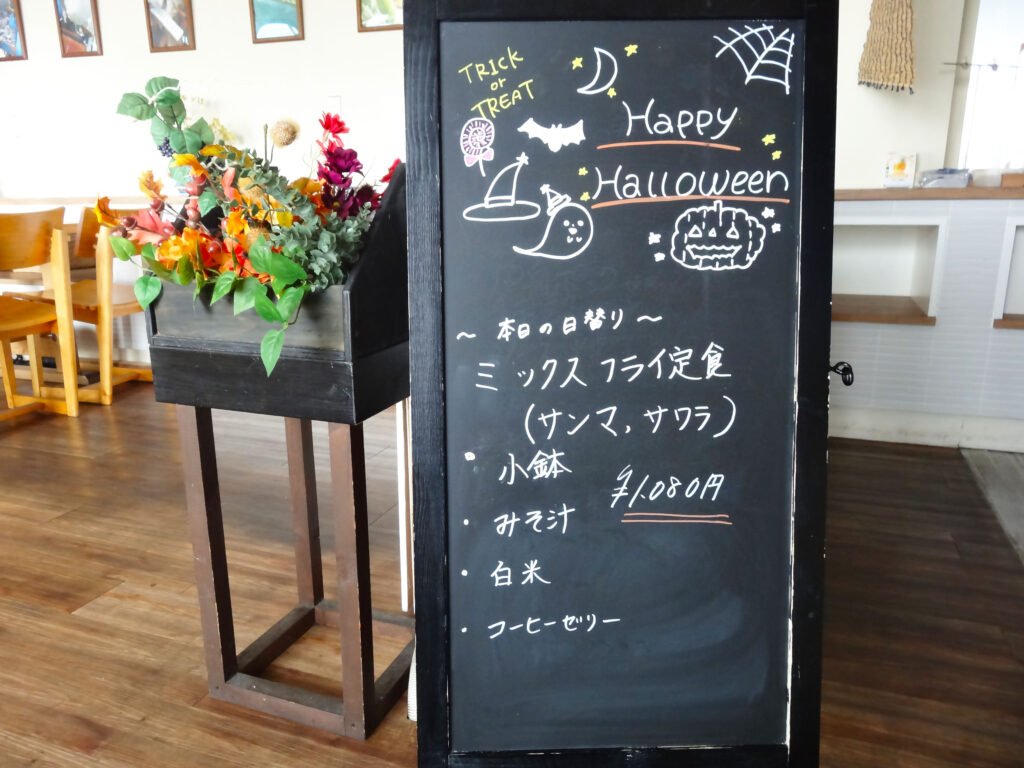 TRICK
or
TREAT
Happy
Halloween
～ 本日の日替り ～
ミックスフライ定食
(サンマ, サワラ)
・小鉢
¥1,080円
・みそ汁
・白米
・コーヒーゼリー